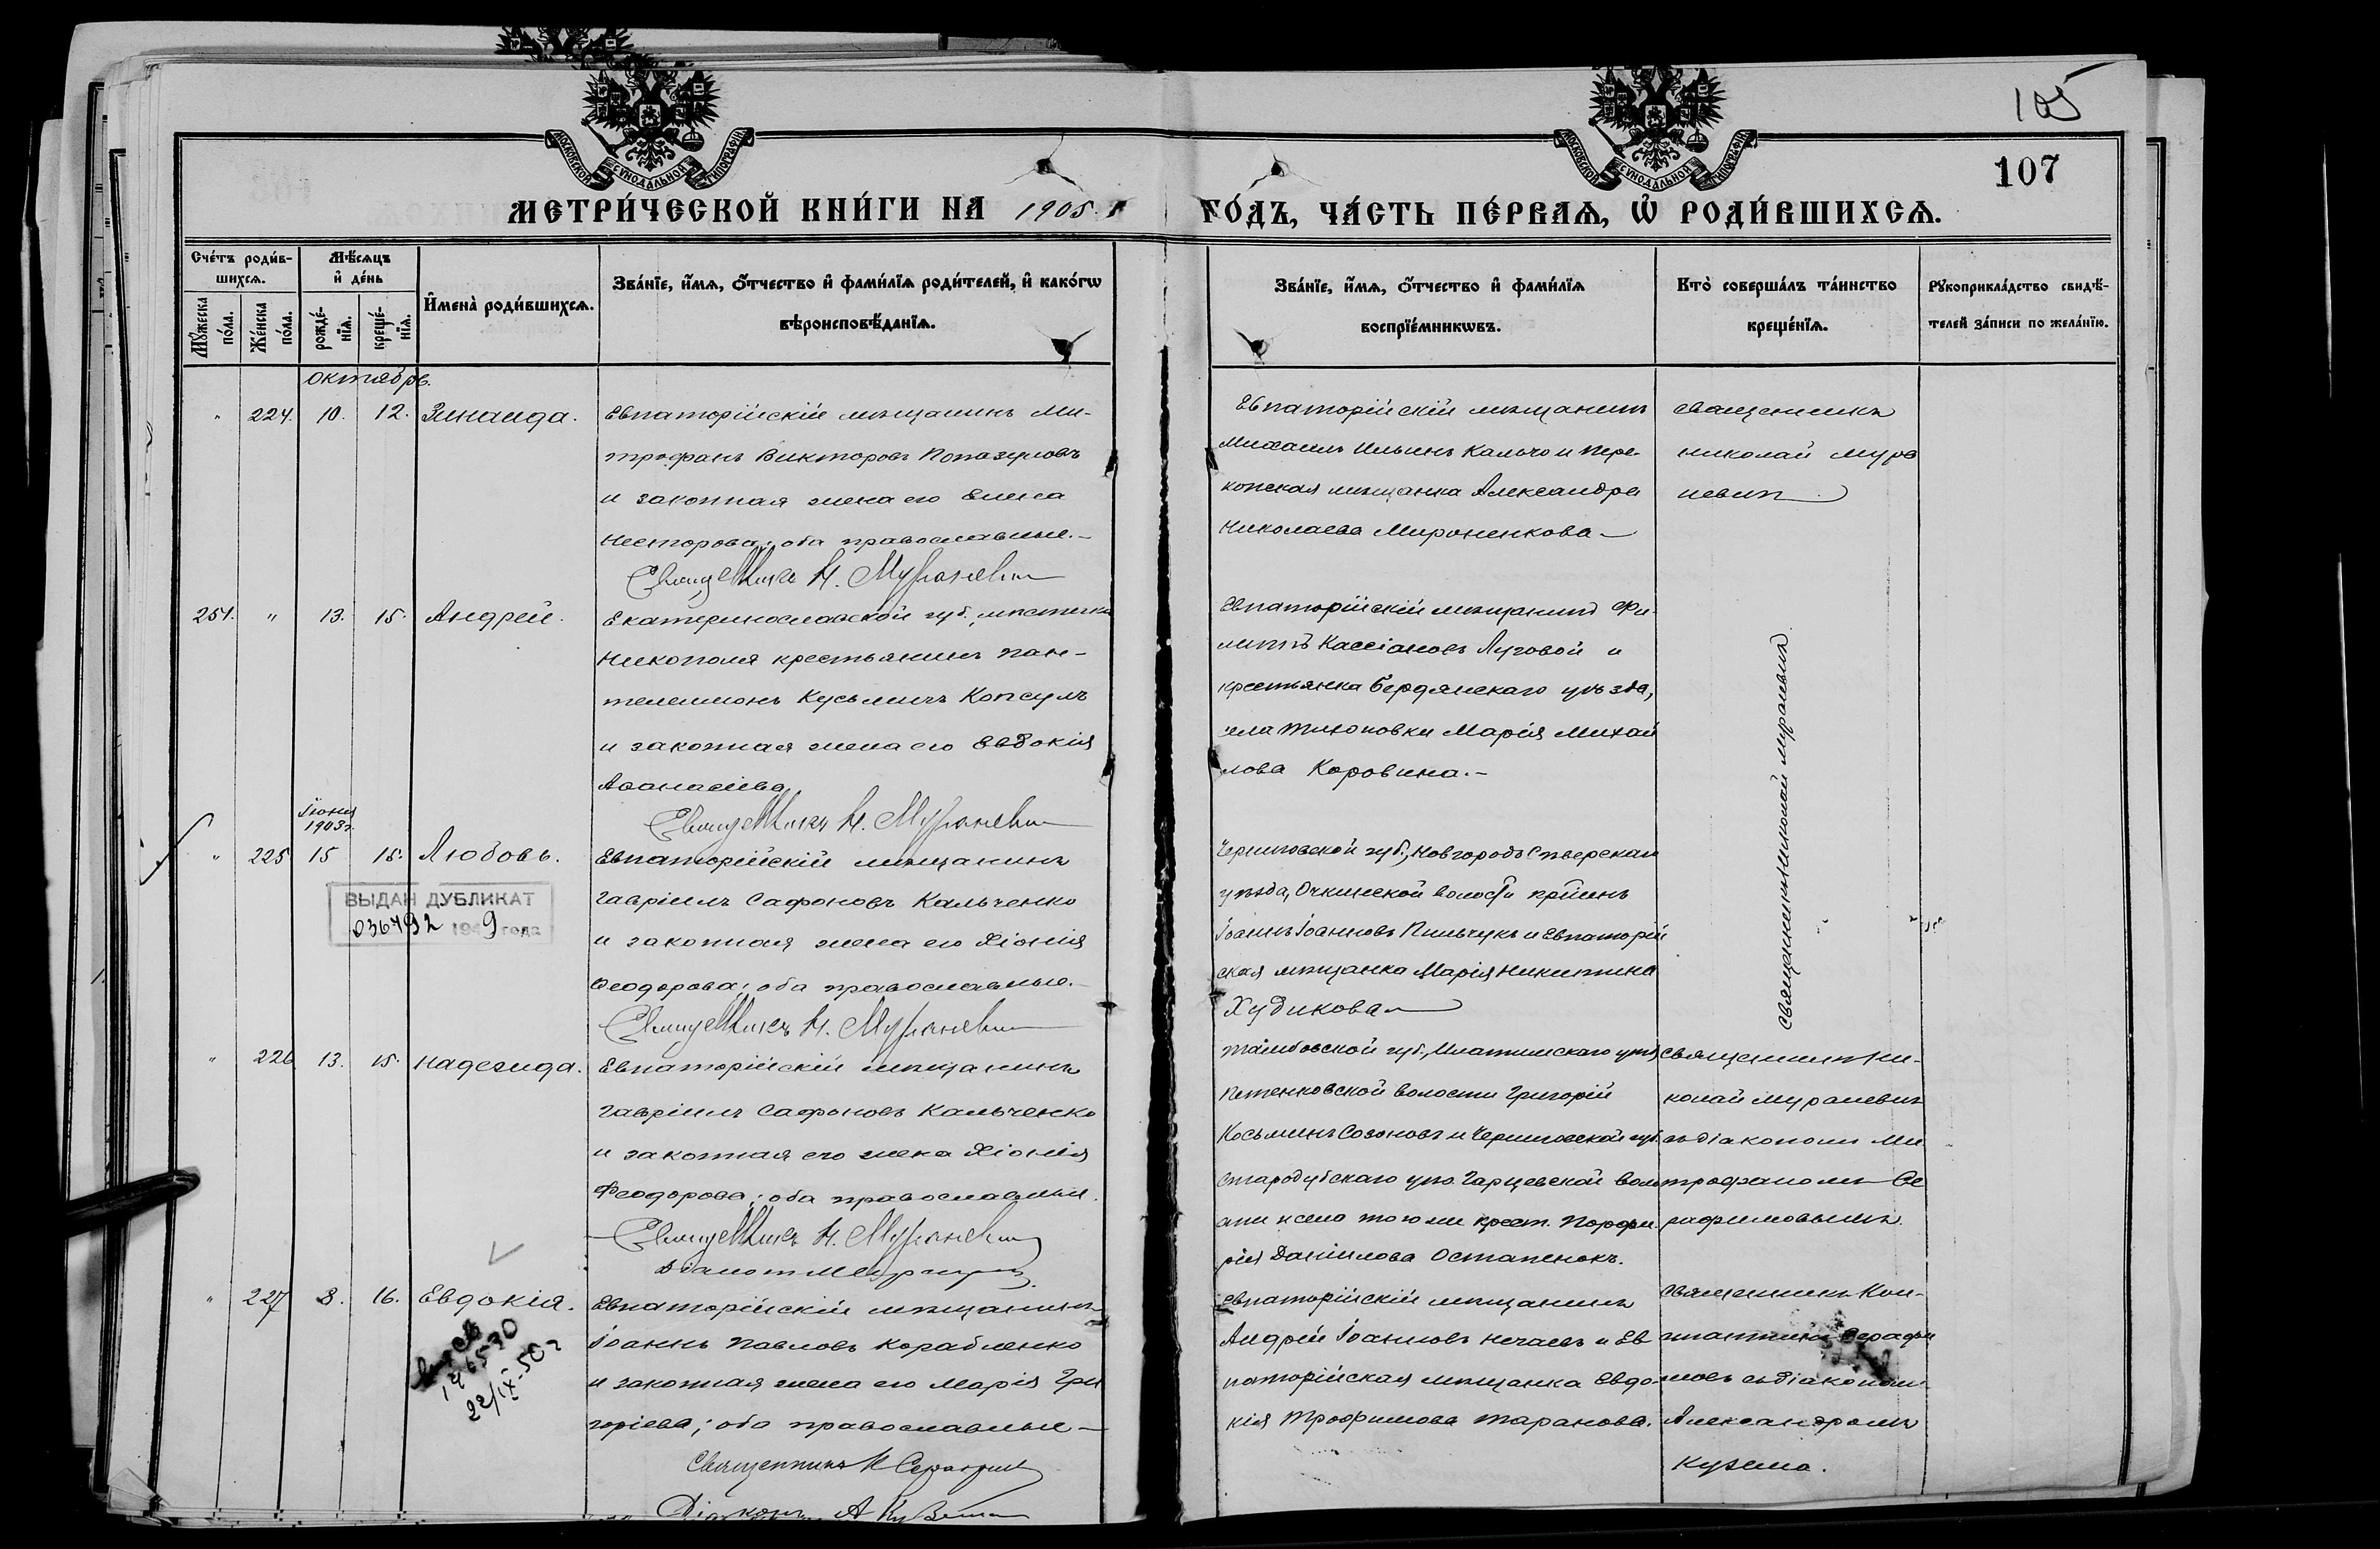 105
107
МОСКОВСКОЙ СѴНОДАЛЬНОЙ ТИПОГРАФІИ
МОСКОВСКОЙ СѴНОДАЛЬНОЙ ТИПОГРАФІИ
МЕТРИ́ЧЕСКОЙ КНИ́ГИ НА 1905. ГО́ДЪ, ЧА́СТЬ ПЕ́РВАѦ, Ѡ҆ РОДИ́ВШИХСѦ.
Сче́тъ роди́в-
шихсѧ.
Мꙋ́жеска по́ла.
Же́нска по́ла.
Мѣ́сѧцъ
и҆ де́нь
рожде́-
нїѧ.
креще́-
нїѧ.
И҆мена̀ роди́вшихсѧ.
Зва́нїе, и҆́мѧ, ѻ҆́тчество и҆ фами́лїѧ роди́телей, и҆ како́гѡ
вѣроисповѣ́данїѧ.
Зва́нїе, и҆́мѧ, ѻ҆́тчество и҆ фами́лїѧ
воспрїе́мникѡвъ.
Кто̀ соверша́лъ та́инство
креще́нїѧ.
Рꙋкоприкла́дство свидѣ́-
телей за́писи по жела́нїю.
октябрь.
" 224. 10. 12. Зинаида.
Евпаторійскій мѣщанинъ Ми-
трофанъ Викторовъ Попазуловъ
и законная жена его Елена
Несторова; оба православные.-
Священникъ Н. Мураневич
Евпаторійскій мѣщанинъ
Михаилъ Ильинъ Кальчо и Пере-
копская мѣщанка Александра
Николаева Мироненкова
священникъ
николай мура
невич
254. " 13. 15. Андрей.
Екатеринославской губ., мѣстечка
Никополя крестьянинъ Пан-
телеимонъ Кусьмичъ Копсулъ
и законная жена его Евдокія
Аѳанасіева
Священникъ Н. Мураневич
Евпаторійскій мѣщанинъ Фи-
липпъ Кассіановъ Луговой и
крестьянка Бердянскаго уѣзда,
села Тихоновки Марія Михай
лова Коровина.-
Священникъ Николай Мураневич
Іюня
1903 г.
" 225 15 15. Любовь.
ВЫДАН ДУБЛИКАТ
036792 1949 года
Евпаторійскій мѣщанинъ
Гавріилъ Сафоновъ Кальченко
и законная жена его Хіонія
Ѳеодорова; оба православные.-
Священникъ Н. Мураневич
Черниговской губ., Новгородъ Сѣверскаго
уѣзда, Очкинской волости
Іоаннъ Іоанновъ Пильчукъ и Евпаторій
ская мѣщанка Марія Никитина
Худикова
" 226 13. 15. Надежда.
Евпаторійскій мѣщанинъ
Гавріилъ Сафоновъ Кальченко
и законная его жена Хіонія
Феодорова; оба православные.
Священникъ Н. Мураневич
Тамбовской губ.,
волости Григорій
Косьминъ Созоновъ и Черниговской губ.
Стародубскаго уѣз. Гарцевской воло
сти и села того же крест. Порфи-
рія Даніилова Остапенокъ.
священникъ Ни-
колай Мураневич
съ діакономъ Ми
трофаномъ Се
рафимовымъ.
" 227 8. 16. Евдокія.
146530
22/IX-50 г
Евпаторійскій мѣщанинъ
Іоаннъ Павловъ Корабленко
и законная жена его Марія Гри
горіева; оба православные
Священникъ К Серафим
Діаконъ А Кузьма
Евпаторійскій мѣщанинъ
Андрей Іоанновъ Нечаевъ и Ев
паторійская мѣщанка Евдо-
кія Трофимова Таранова.
Священникъ Кон-
стантинъ Серафи
мовъ съ діакономъ
Александромъ
Кузьма.